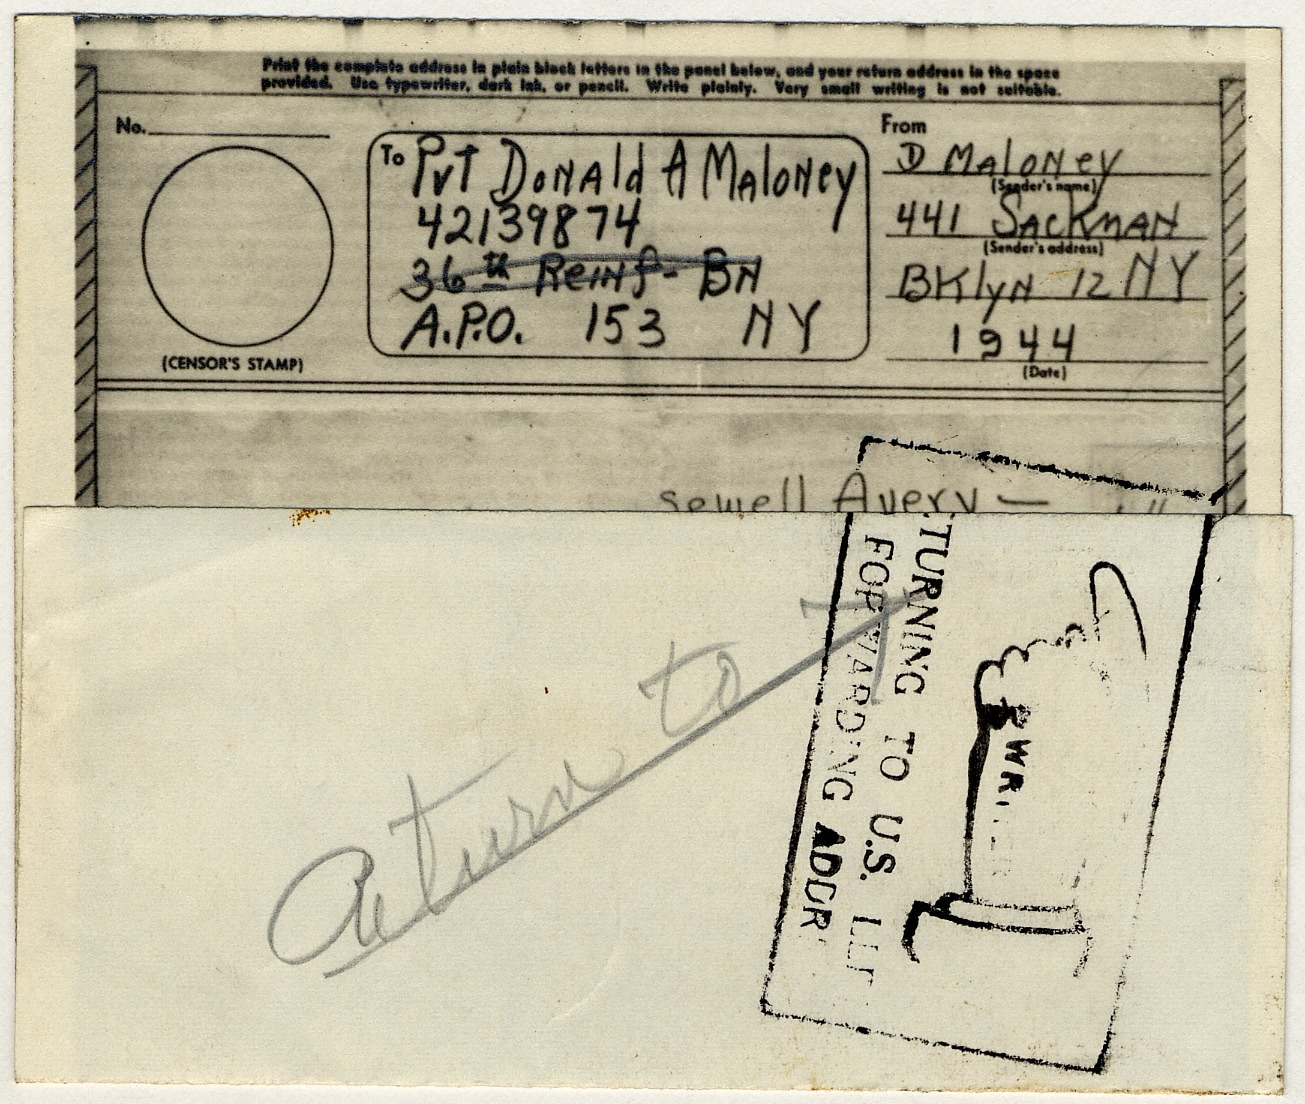 Print the complete address in plain block letters in the panel below, and your return address in the space
provided. Use typewriter, dark ink, or pencil. Write plainly. Very small writing is not suitable.
No.
(CENSOR'S STAMP)
To PvT DoNAld A MALoNey
42139874
36th Reinf- BN
A.P.O. 153 NY
From
D MALoNey
(Sender's name)
441 SACKMAN
(Sender's address)
BKlyN 12 NY
1944
(Date)
sewell Avery —
TURNING TO U.S.
FORWARDING ADDR
Return to